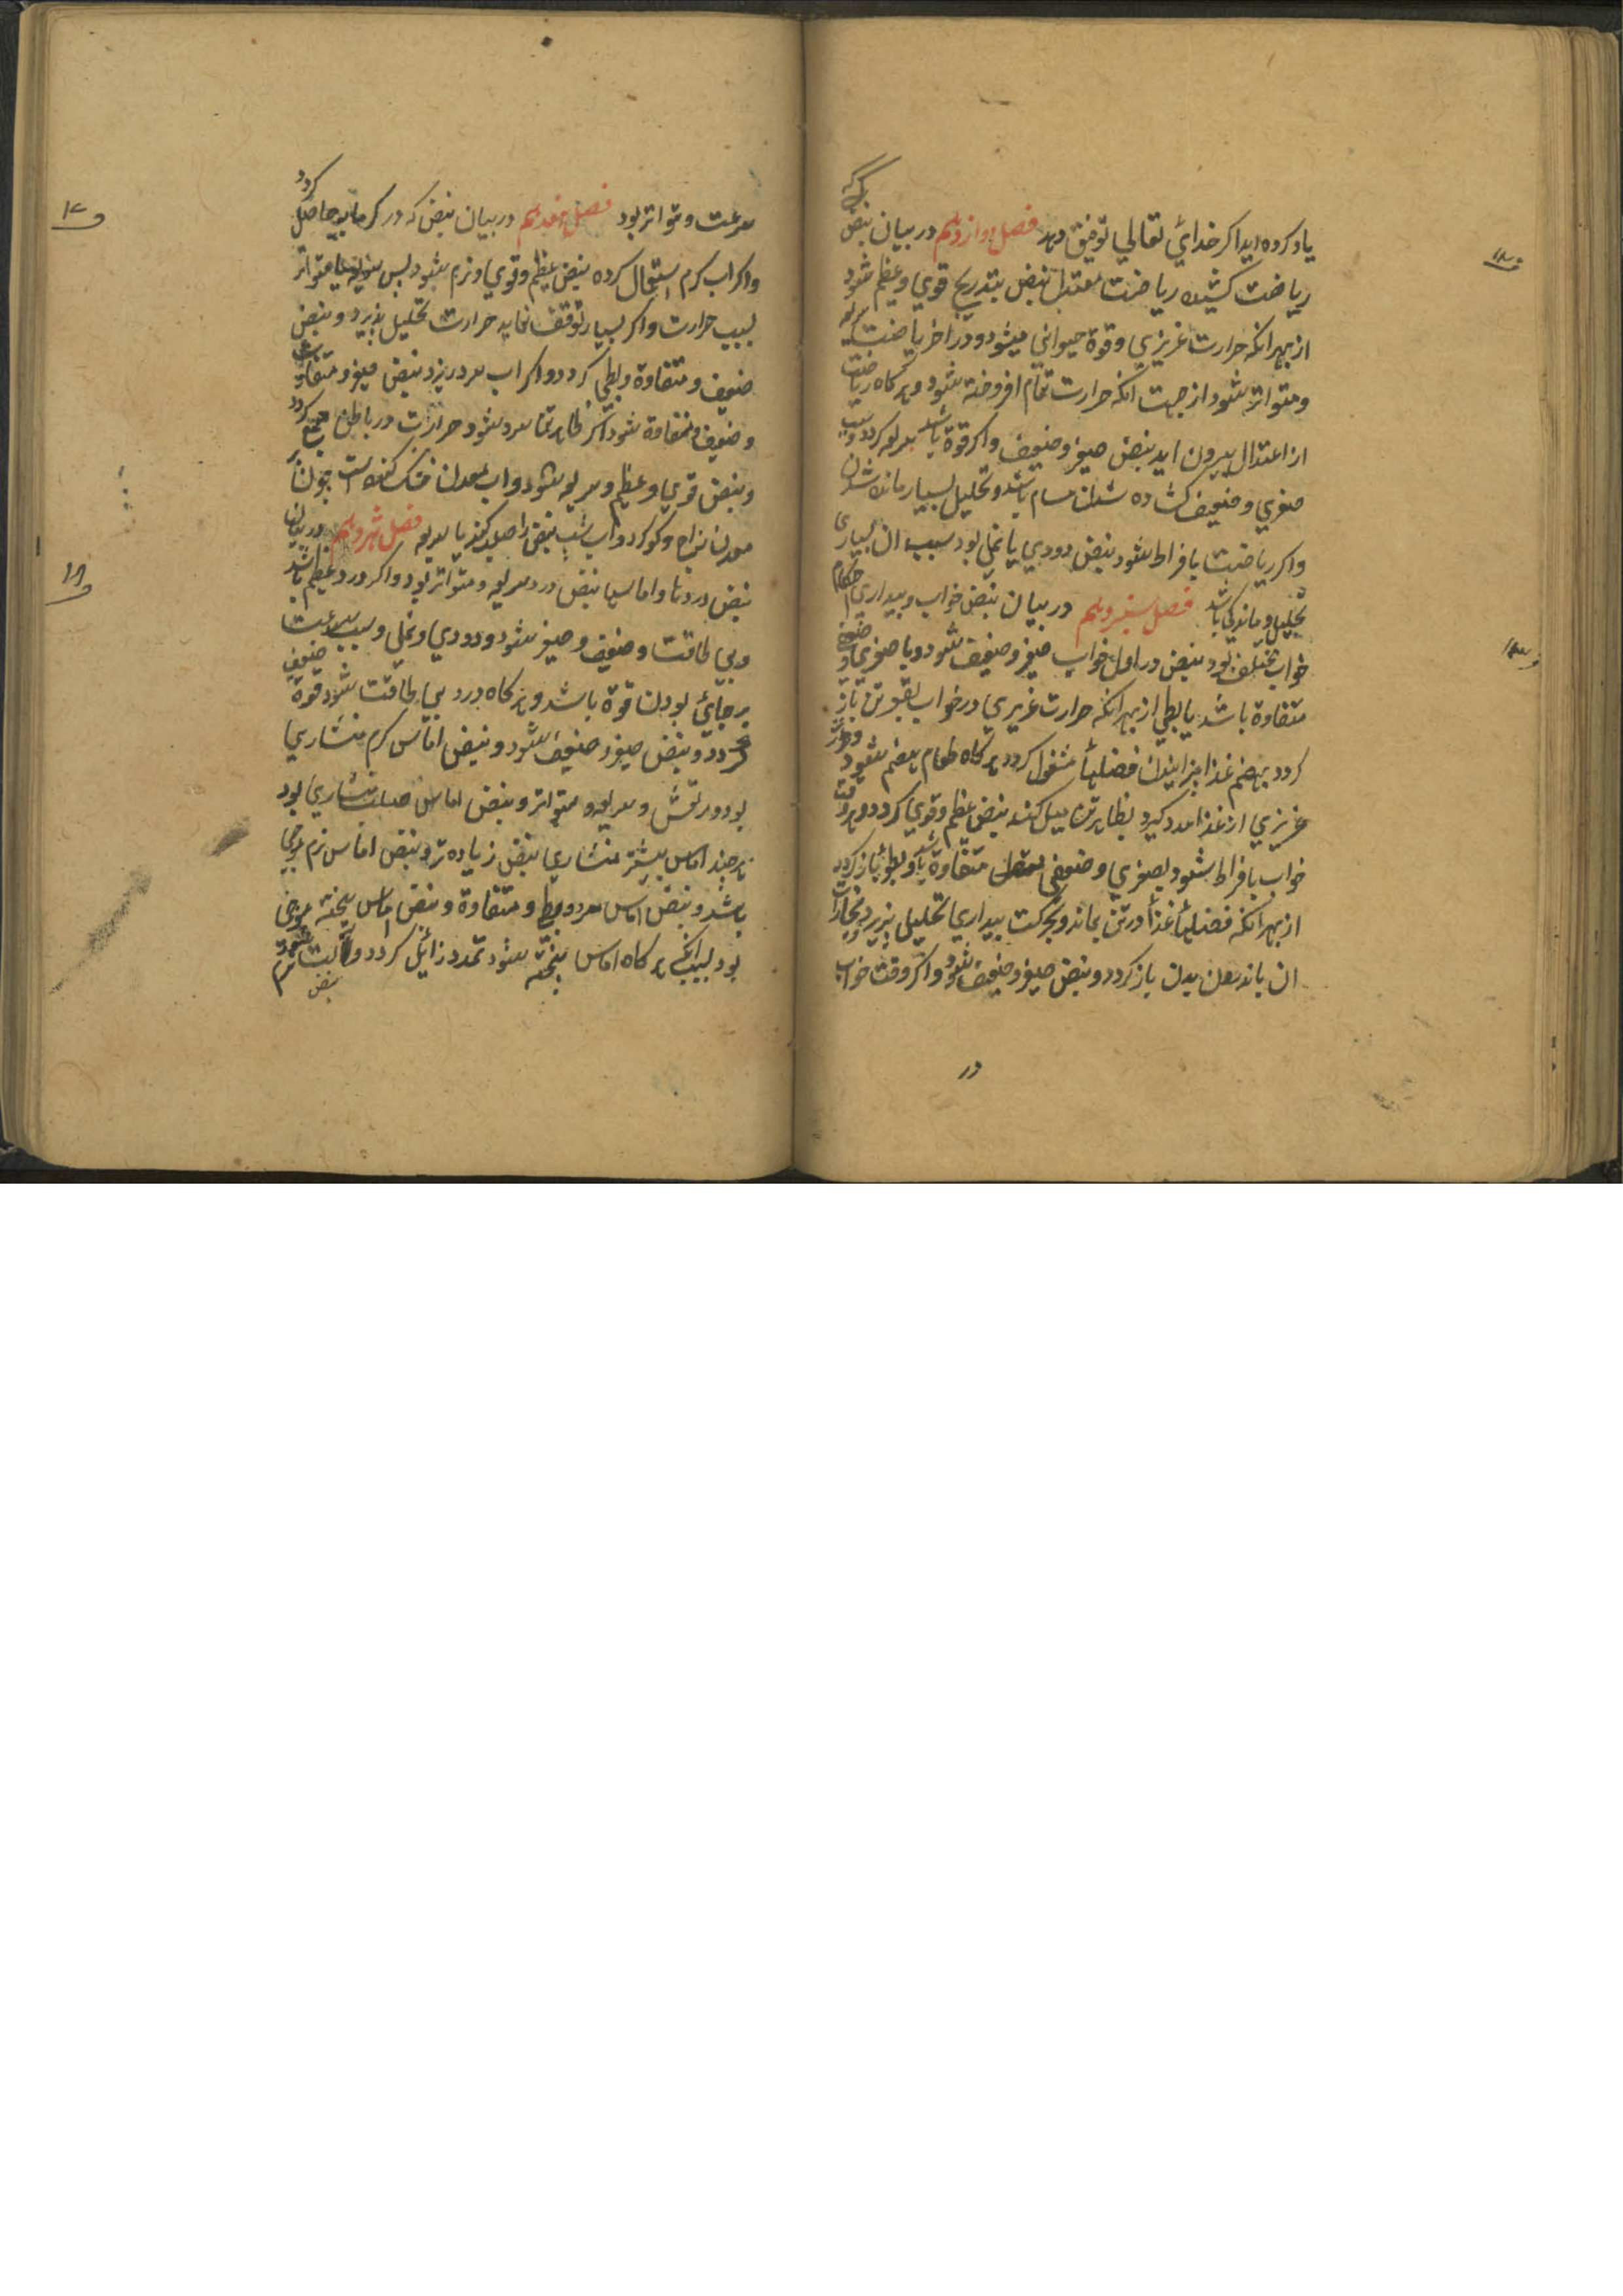 یاد کرده اید اکر خدائ تعالی توفیق دهد فصل دوازدهم در بیان نبض
ریاضت کشیده ریاضت معتدل نبض بتدریج قوی و عظیم شود
از بهر انکه حرارت غریزی و قوة حیوانی میشود و در اخر ریاضت سریع
و متواتر شود از جهت انکه حرارت تمام افروخته شود و هر کاه ریاضت
از اعتدال بیرون اید نبض صغیر و ضعیف و اکر قوة باشد سریع کردد و سبب
صغری و ضعیف کشاده شدن مسام باشد و تحلیل بسیار مانده شدن
و اکر ریاضت بافراط شود نبض دودی یا نملی بود سبب ان بسیاری
تحلیل و ماندکی باشد فصل سیزدهم در بیان نبض خواب و بیداری احکام
خواب مختلف بود نبض در اول خواب صغیر و ضعیف شود و با صغری و ضعیفی
متفاوة باشد یا بطی از بهر انکه حرارت غریزی در خواب بقعر تن باز
کردد بهضم غذا بپزانیدن فضلها مشغول کردد هر کاه طعام هضم شود و حرارت
غریزی از غذا مدد کیرد بظاهر تن میل کند نبض عظیم و قوی کردد و هر وقت
خواب بافراط شود بصغری و ضعیفی متفاوة باشد و بطو باز کردد
از بهر انکه فضلها غذا در تن بماند و بحرکت بیداری تحلیل نپذیرد و بخارات
ان باندرون بدن باز کردد و نبض صغیر و ضعیف شود و اکر وقت خواب
در
سرعت و متواتر بود فصل هفدهم در بیان نبض که در کرمابه حاصل کردد
و اکر اب کرم استعمال کرده نبض عظیم و قوی و نرم شود پس سریع یا متواتر
بسبب حرارت و اکر بسیار توقف نماید حرارت تحلیل پذیرد و نبض
ضعیف و متفاوة و بطی کردد و اکر اب سرد ریزد نبض صغیر و متفاوت باشد
و ضعیف و متفاوة شود اکر ظاهر تن سرد شود حرارت در باطن جمع کردد
و نبض قوی و عظیم و سریع شود و اب معدن خشک کننده است چون
معدن زاج و کوکرد و اب شب نبض را صلب کند یا سریع فصل هژدهم در بیان
نبض دردها و اماسها نبض درد سریع و متواتر بود و اکر درد عظیم باشد
و بی طاقت و ضعیف و صغیر شود و دودی و نملی و سبب سرعت
بر جائ بودن قوة باشد و هر کاه درد بی طاقت شود قوة ضعیف
کردد و نبض صغیر و ضعیف شود و نبض اماس کرم منشاری
بود و مرتعش و سریع و متواتر و نبض اماس صلب منشاری بود
هر چند اماس بیشتر منشاری نبض زیاده تر و نبض اماس نرم موجی
باشد و نبض اماس سرد و بطی و متفاوة و نبض اماس پخته موجی
بود بسبب انکه هر کاه اماس پخته شود تمدد زائل کردد و الت نرم شود
نبض